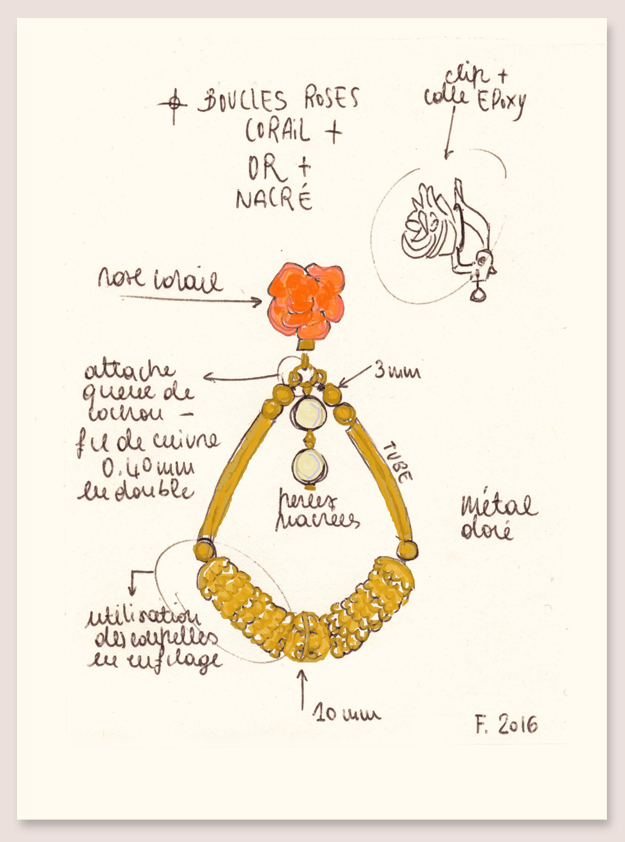 BOUCLES ROSES
CORAIL +
OR +
NACRÉ
clip +
colle EPOXY
rose corail
attache
queue de
cochon -
fil de cuivre
0.40mm
en double
3mm
TUBE
perles
nacrées
Métal
doré
utilisation
des coupelles
en enfilage
10 mm
F. 2016